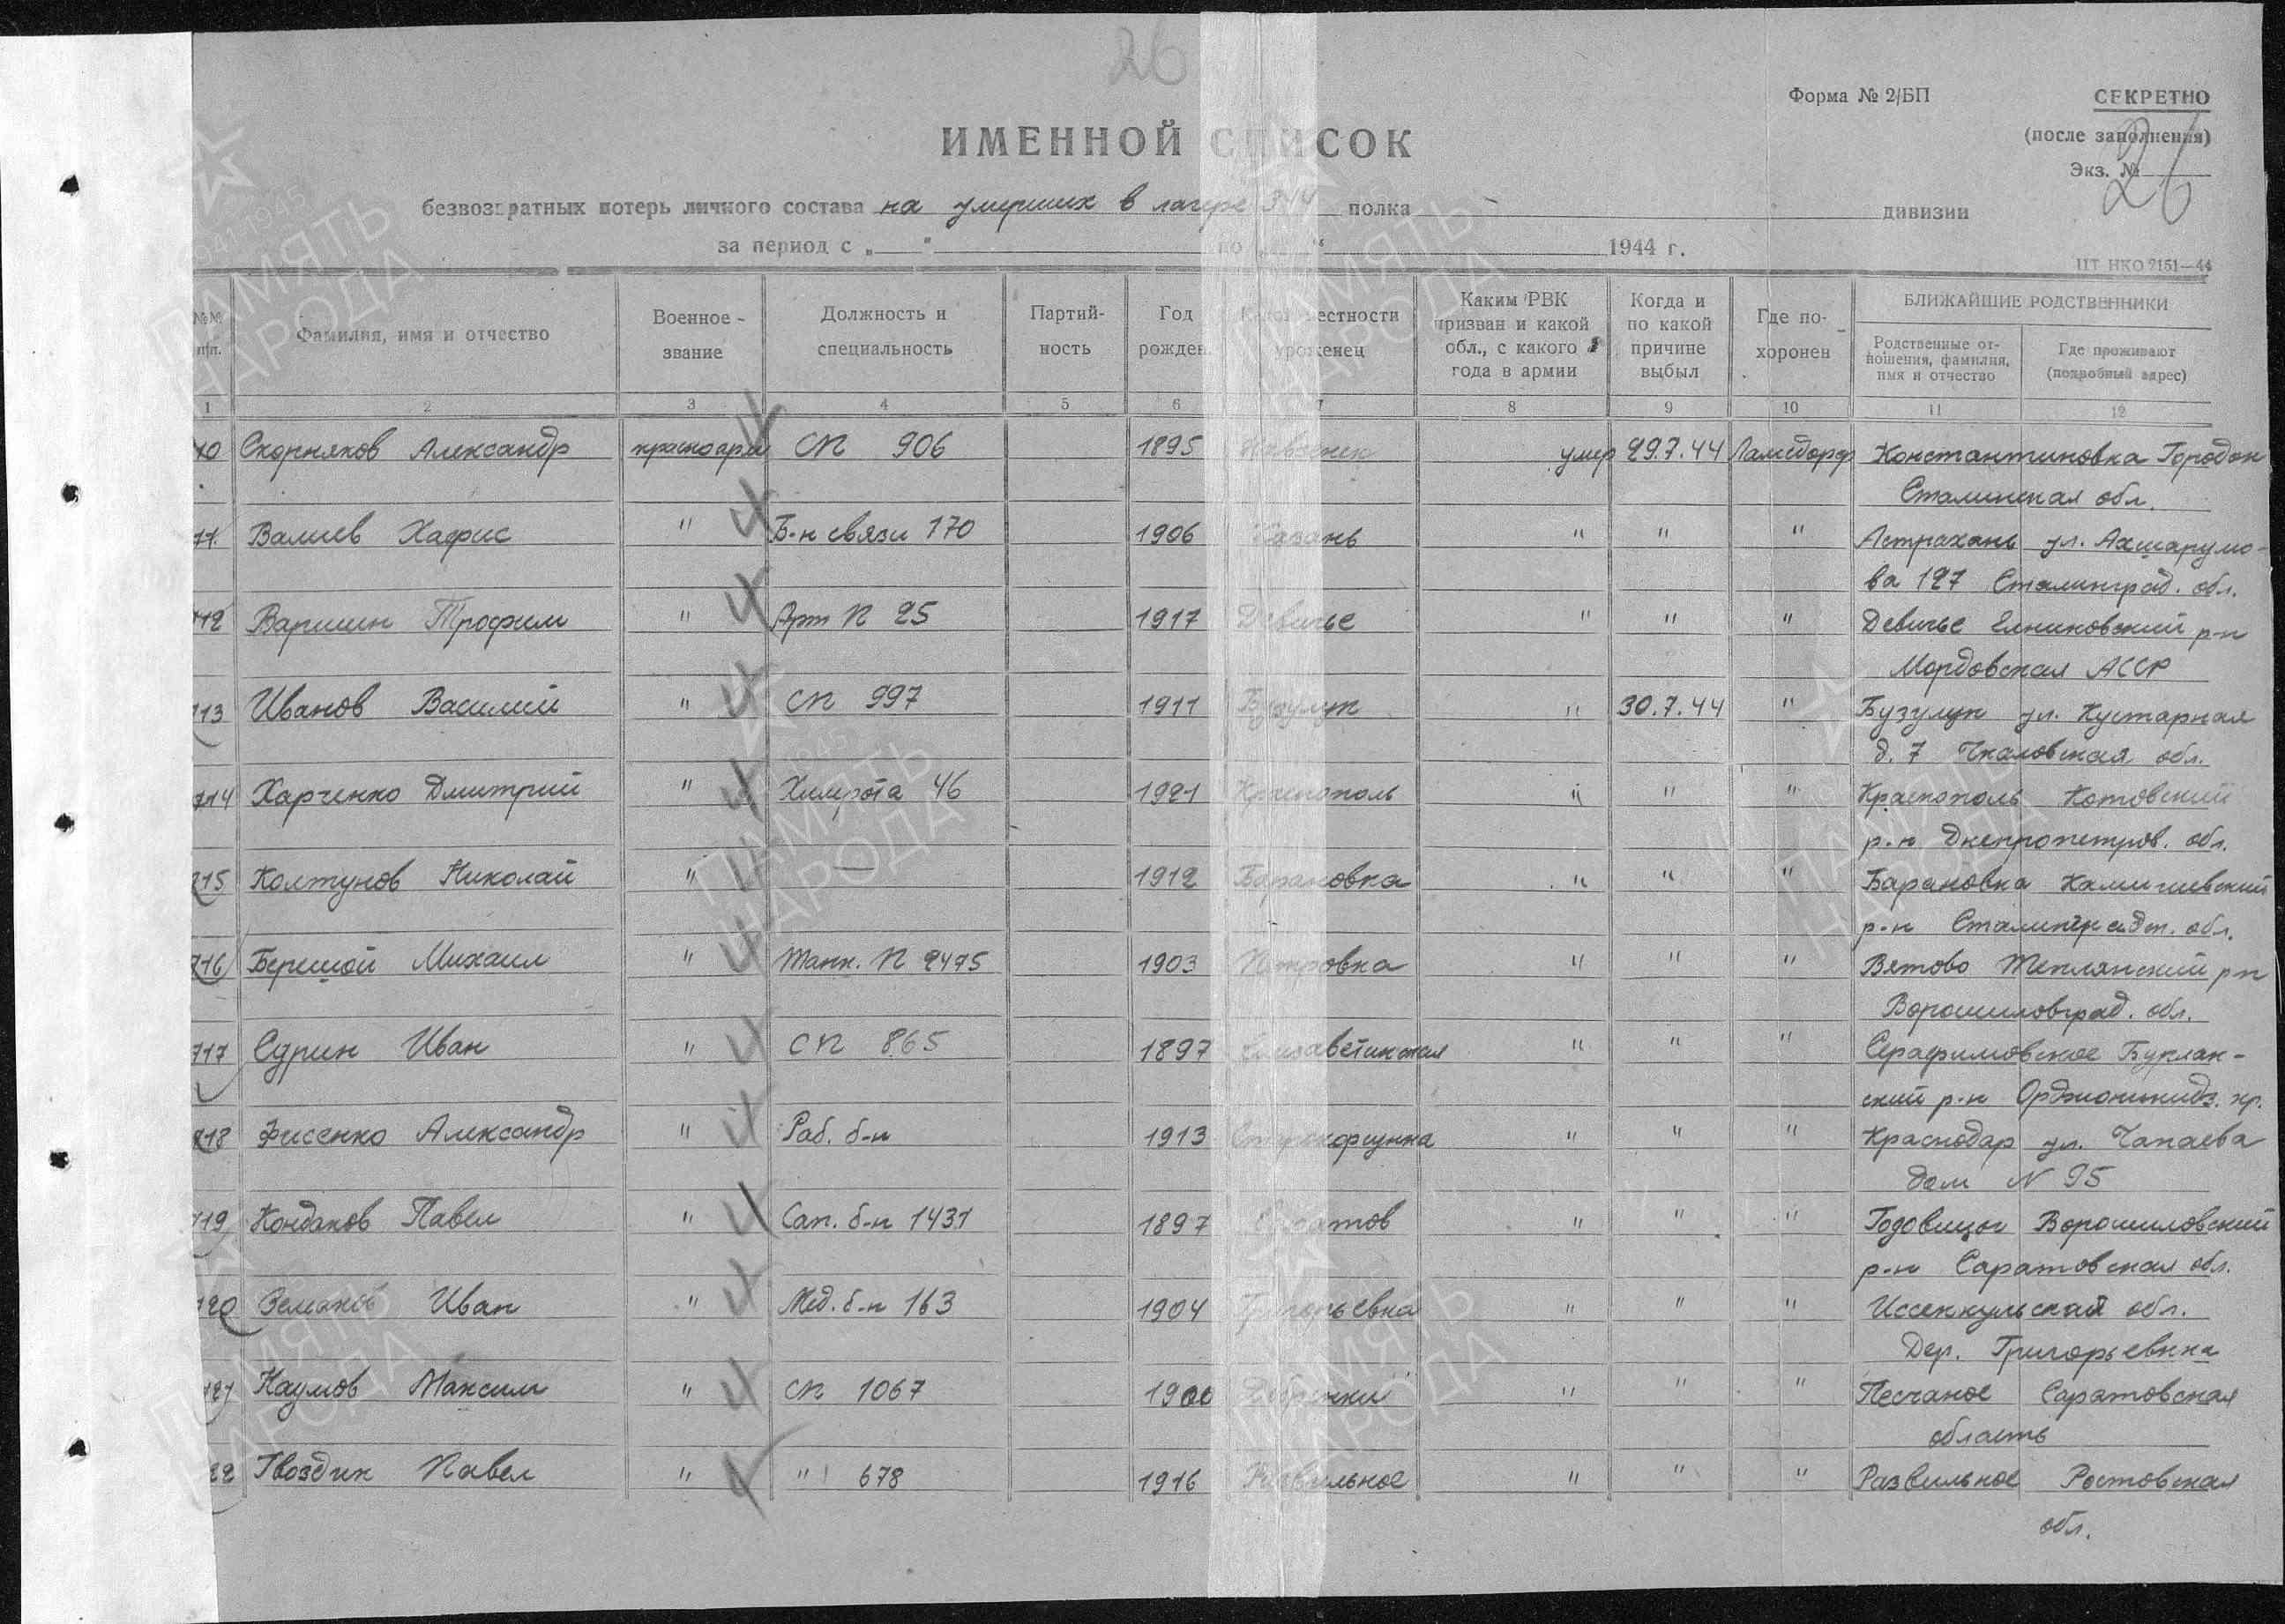 26
Форма № 2/БП
СЕКРЕТНО
(после заполнения)
Экз. №
26
ИМЕННОЙ СПИСОК
безвозвратных потерь личного состава на умерших в лагере 344 полка - дивизии
за период с „ " по „ " 1944 г.
ЦТ НКО 2151—44
№№ п/п. Фамилия, имя и отчество Военное звание Должность и специальность Партийность Год рожден. Какой местности уроженец Каким РВК призван и какой обл., с какого года в армии Когда и по какой причине выбыл Где похоронен БЛИЖАЙШИЕ РОДСТВЕННИКИ
Родственные отношения, фамилия, имя и отчество Где проживают (подробный адрес)
1 2 3 4 5 6 7 8 9 10 11 12
10 Скорняков Александр красноарм СП 906 1895 умер 29.7.44 Ламсдорф Константиновка Городок
Сталинская обл.
11. Валиев Хафис " Б-н связи 170 1906 Казань " " " Астрахань ул. Ахшарумо-
ва 127 Сталинград. обл.
12 Варишин Трофим " Арт П 25 1917 Девичье " " " Девичье Елниковский р-н
Мордовская АССР
713 Иванов Василий " СП 997 1911 Бузулук " 30.7.44 " Бузулук ул. Кустарная
д. 7 Чкаловская обл.
714 Харченко Дмитрий " Химрота 46 1921 Краснополь " " " Краснополь Котовский
р-н Днепропетров. обл.
715 Колтунов Николай " — 1912 Барановка " " " Барановка Камишевский
р-н Сталинградск. обл.
716 Берешой Михаил " Танк. П 2475 1903 Петровка " " " Вятово Теплянский р-н
Ворошиловград. обл.
717 Сурин Иван " СП 865 1897 Елизаветинская " " " Серафимовское Буклан-
ский р-н Орджоникидз. кр.
718 Фисенко Александр " Раб. б-н 1913 Старокорсунка " " " Краснодар ул. Чапаева
дом N 95
719 Кондаков Павел " Сап. б-н 1431 1897 Саратов " " " Годовицы Ворошиловский
р-н Саратовская обл.
720 Земаков Иван " Мед. б-н 163 1904 Григорьевка " " " Иссеккульская обл.
Дер. Григорьевка
721 Наумов Максим " СП 1067 1900 " " " Песчаное Саратовская
область
22 Гвоздик Павел " " 678 1916 Развильное " " " Развильное Ростовская
обл.
ПАМЯТЬ НАРОДА